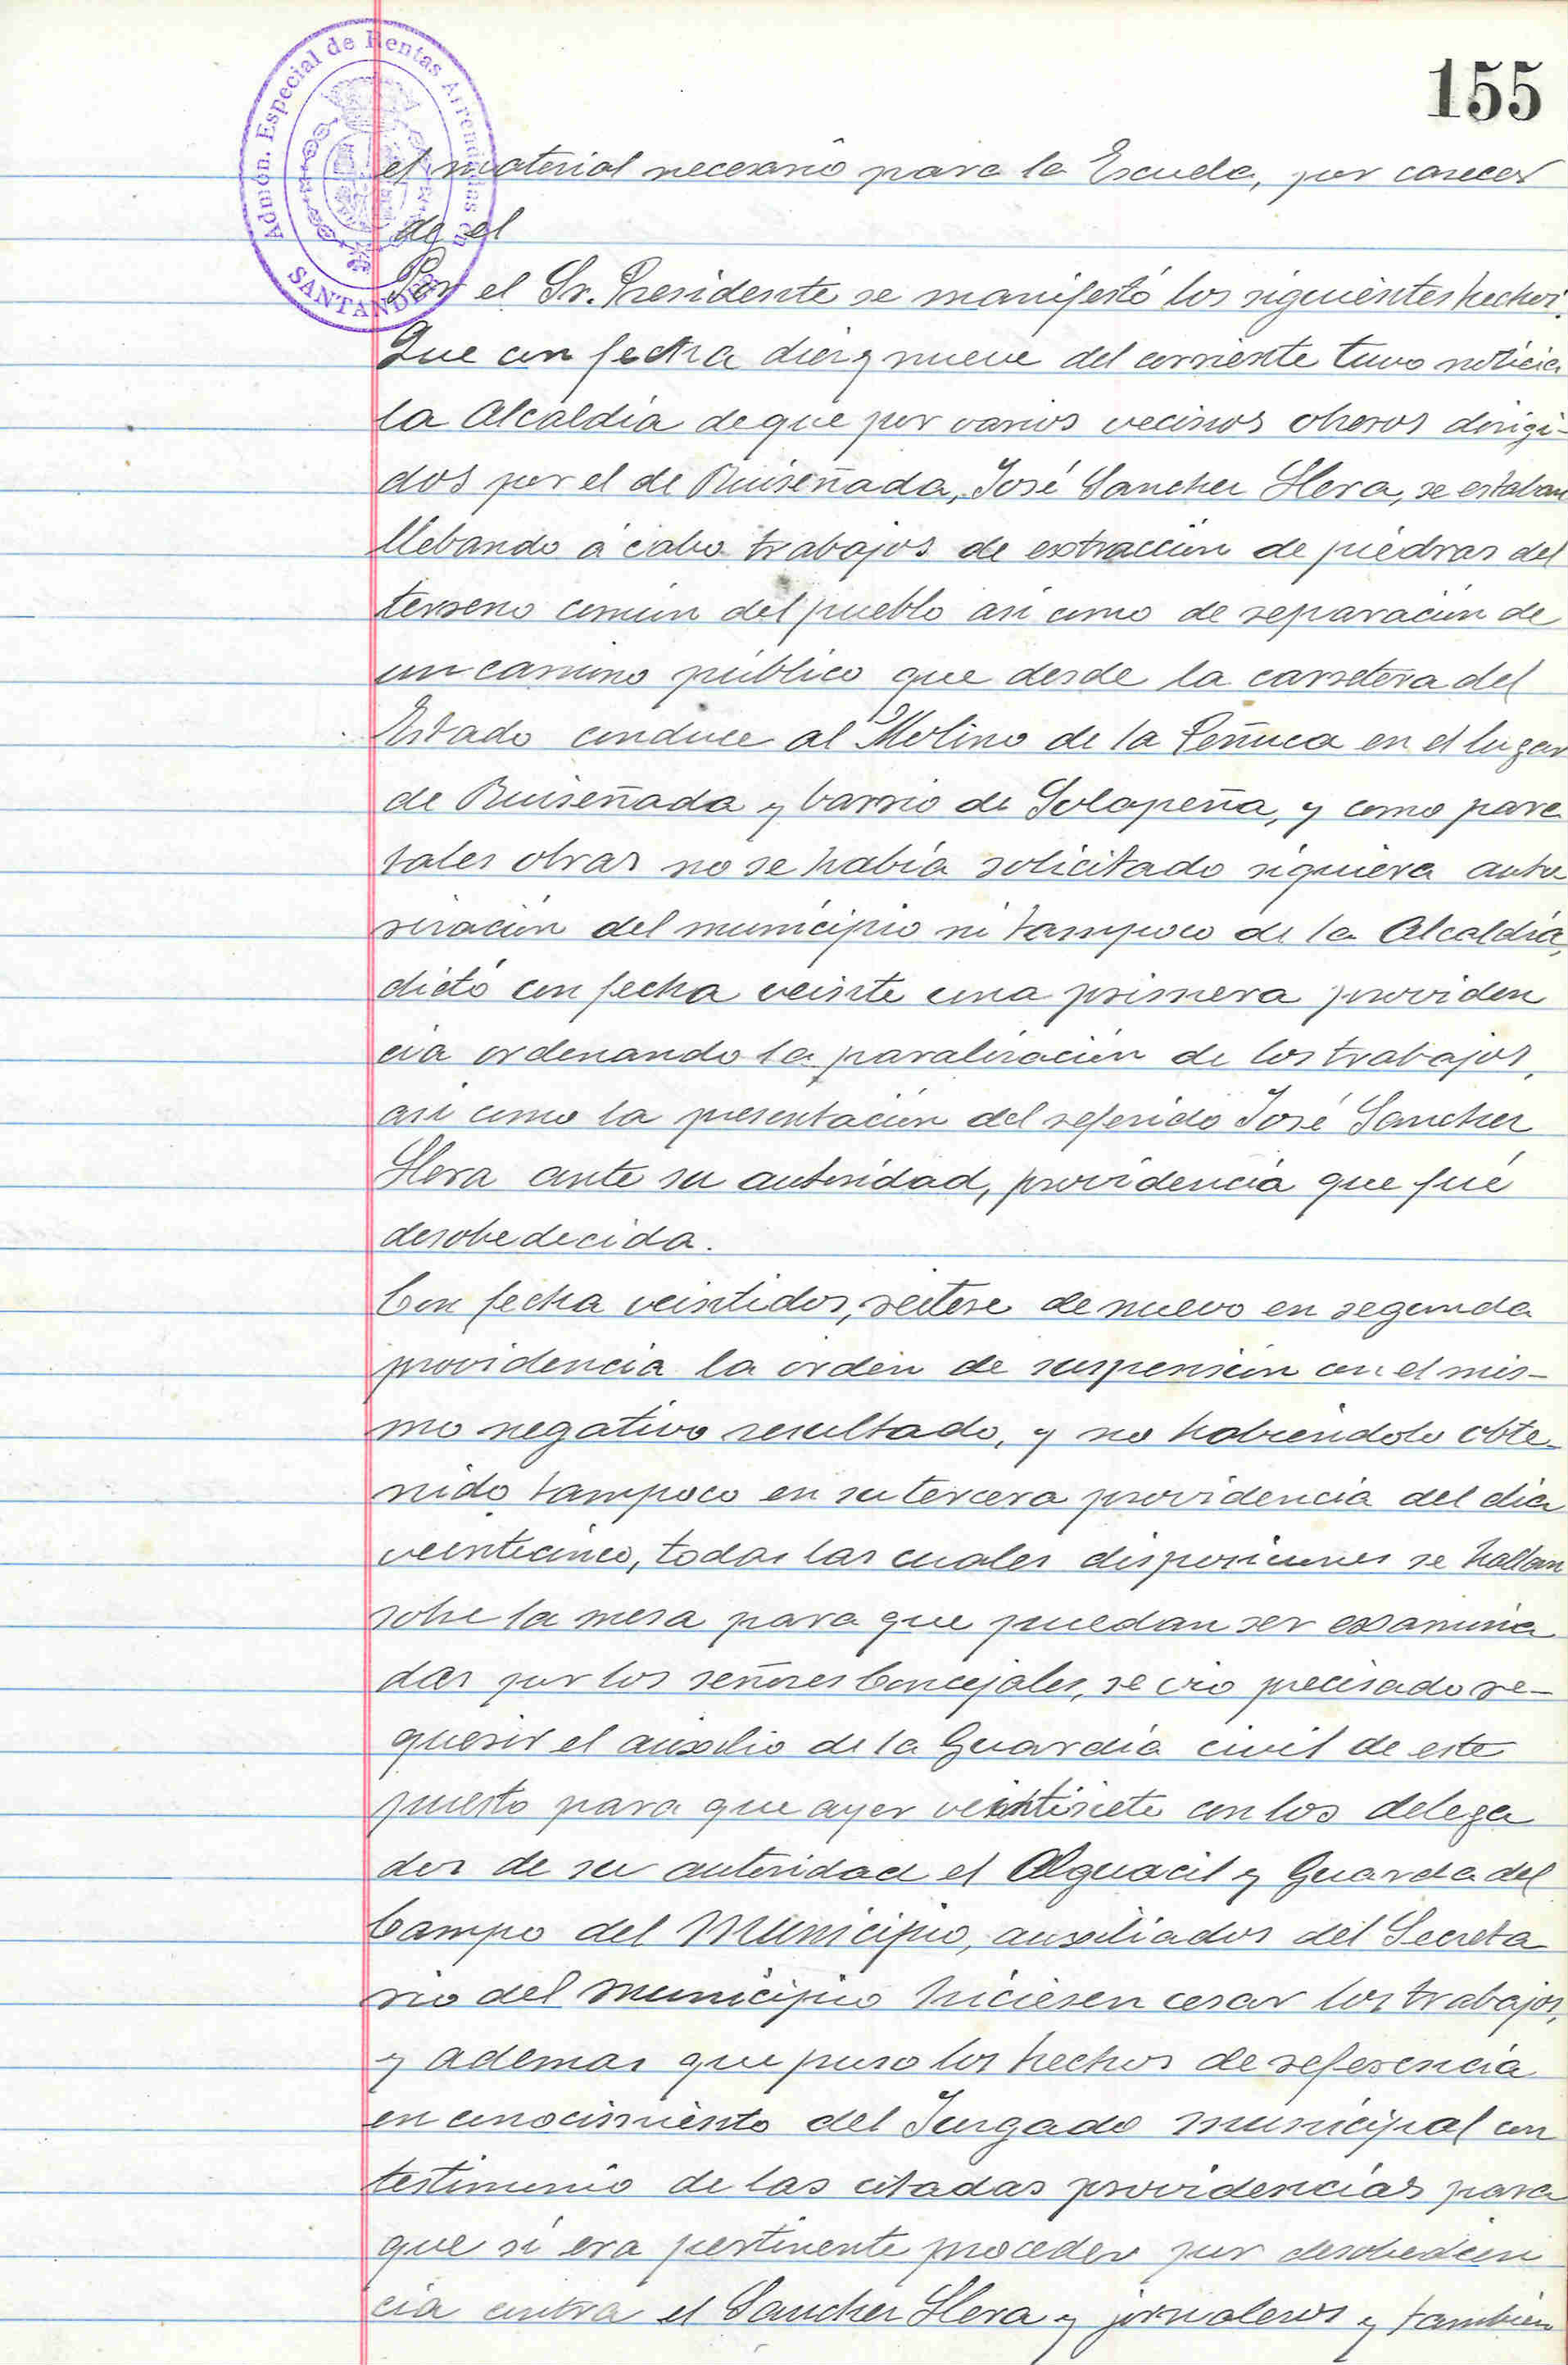 155
Admón. Especial de Rentas Arrendadas en
SANTANDER
el material necesario para la Escuela, por carecer
de el
Por el Sr. Presidente se manifestó los siguientes hechos.
Que con fecha diez y nueve del corriente tuvo noticia
la Alcaldía de que por varios vecinos obreros dirigi-
dos por el de Ruiseñada, José Sanchez Llera, se estaban
llebando á cabo trabajos de extracción de piedras del
terreno común del pueblo asi como de reparación de
un camino público que desde la carretera del
Estado conduce al Molino de la Peñuca en el lugar
de Ruiseñada y barrio de Solapeña, y como para
tales obras no se había solicitado siquiera auto
rización del municipio ni tampoco de la Alcaldía,
dictó con fecha veinte una primera providen
cia ordenando la paralización de los trabajos,
asi como la presentación del referido José Sanchez
Llera ante su autoridad, providencia que fué
desobedecida.
Con fecha veintidos, reitere de nuevo en segunda
providencia la orden de suspensión con el mis-
mo negativo resultado, y no habiéndolo obte-
nido tampoco en su tercera providencia del dia
veinticinco, todas las cuales disposiciones se hallan
sobre la mesa para que puedan ser examina
das por los señores Concejales, se vio precisado re-
querir el auxilio de la Guardia civil de este
puesto para que ayer veintisiete con los delega
dos de su autoridad el Alguacil y Guarda del
Campo del Municipio, auxiliados del Secreta
rio del municipio hiciesen cesar los trabajos,
y ademas que puso los hechos de referencia
en conocimiento del Juzgado municipal con
testimonio de las citadas providencias para
que si era pertinente proceder por desobedien
cia contra el Sanchez Llera y jornaleros y tambien